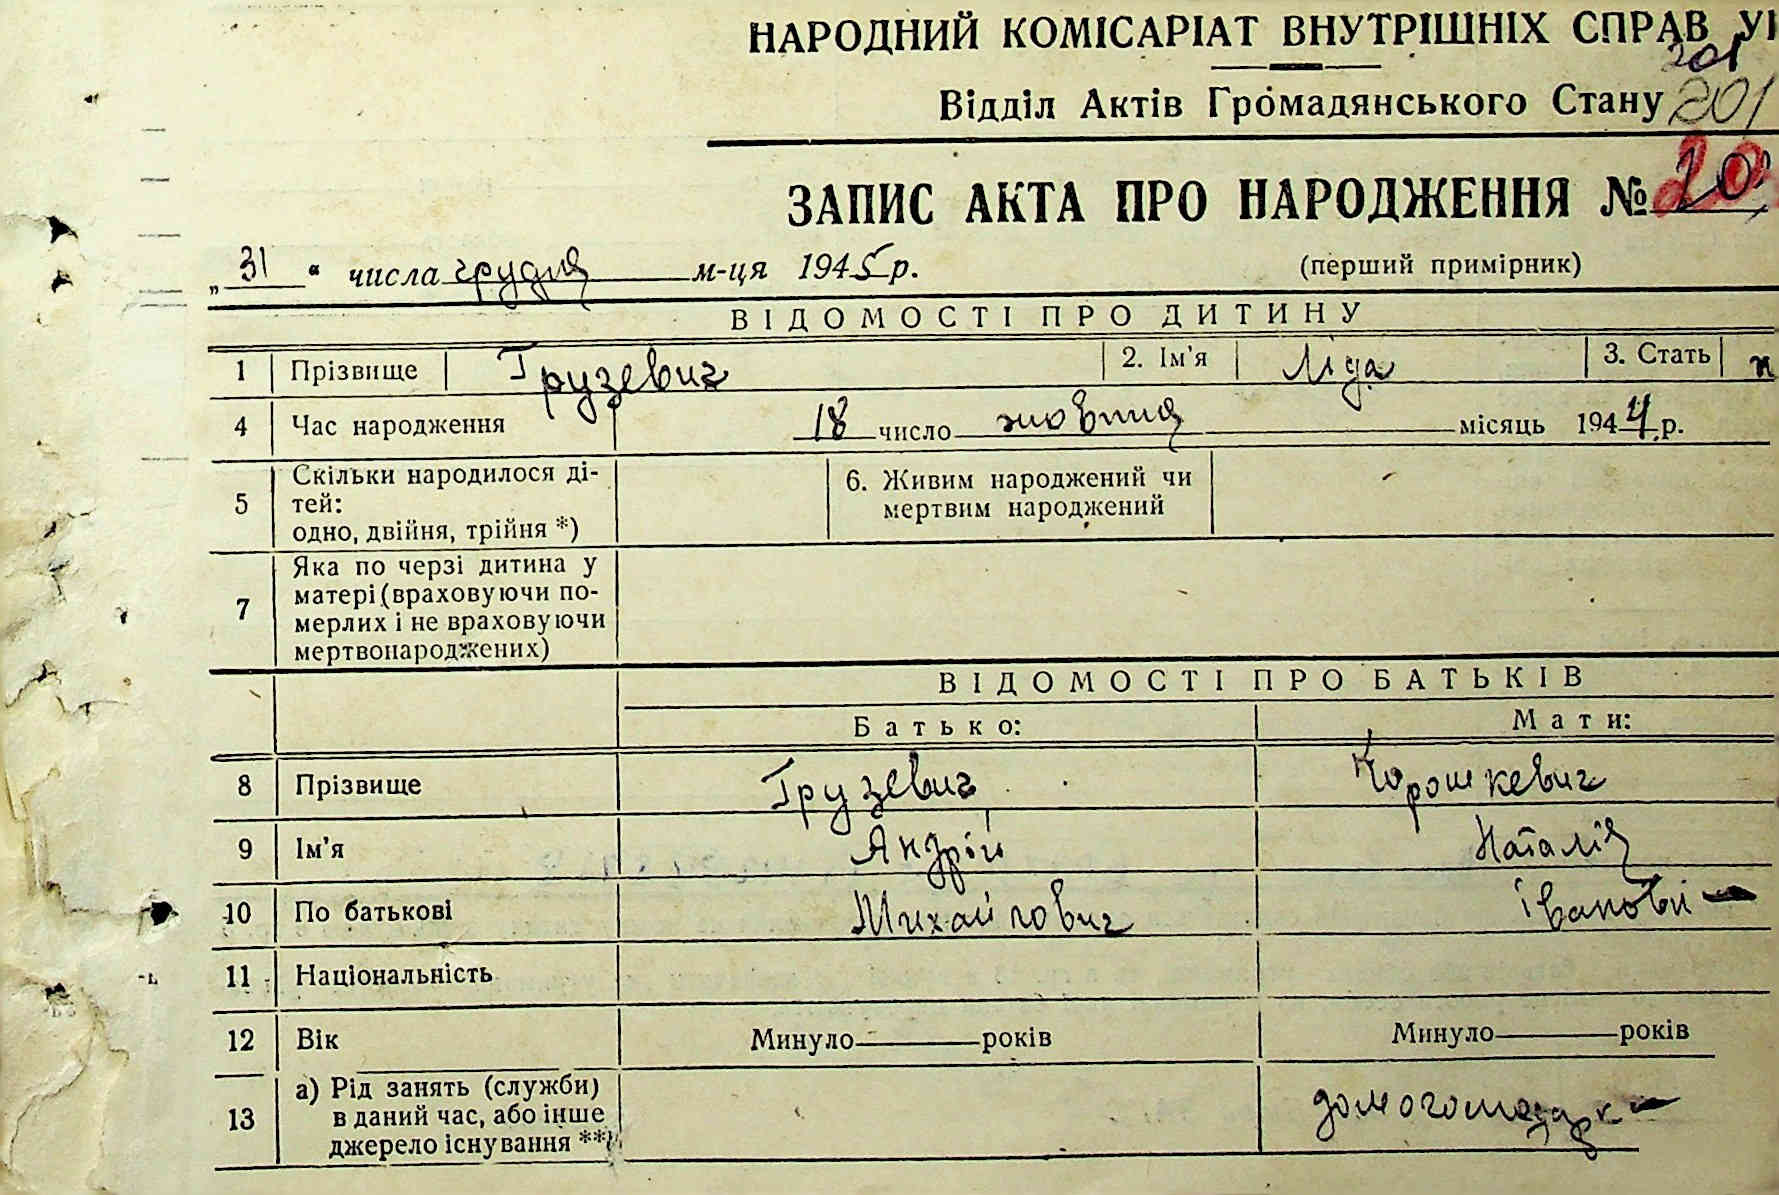 НАРОДНИЙ КОМІСАРІАТ ВНУТРІШНІХ СПРАВ У
201
Відділ Актів Громадянського Стану 201
ЗАПИС АКТА ПРО НАРОДЖЕННЯ № 201
„31“ числа грудня м-ця 1945 р. (перший примірник)
ВІДОМОСТІ ПРО ДИТИНУ
1 Прізвище Грузевич 2. Ім'я Ліда 3. Стать
4 Час народження 18 число жовтня місяць 1944 р.
5 Скільки народилося ді-
тей:
одно, двійня, трійня *) 6. Живим народжений чи
мертвим народжений
7 Яка по черзі дитина у
матері (враховуючи по-
мерлих і не враховуючи
мертвонароджених)
ВІДОМОСТІ ПРО БАТЬКІВ
Батько: Мати:
8 Прізвище Грузевич Корошкевич
9 Ім'я Андрій Наталія
10 По батькові Михайлович Іванові
11 Національність
12 Вік Минуло років Минуло років
13 а) Рід занять (служби)
в даний час, або інше
джерело існування **)